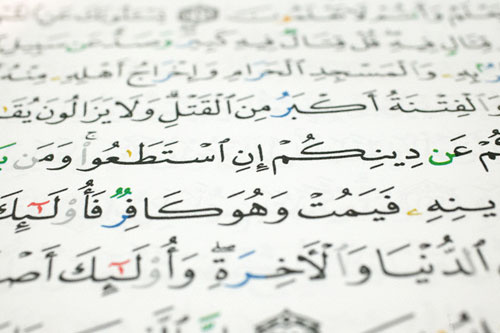 قِتَالٍ فِيهِ قُلْ قِتَالٌ فِيهِ كَبِيرٌ وَصَدٌّ عَن سَبِيلِ
بِهِۦ وَٱلْمَسْجِدِ ٱلْحَرَامِ وَإِخْرَاجُ أَهْلِهِۦ مِنْهُ
وَٱلْفِتْنَةُ أَكْبَرُ مِنَ ٱلْقَتْلِ وَلَا يَزَالُونَ يُقَـٰ
كُمْ عَن دِينِكُمْ إِنِ ٱسْتَطَـٰعُوا۟ وَمَن يَ
ينِهِۦ فَيَمُتْ وَهُوَ كَافِرٌ فَأُو۟لَـٰٓئِكَ
ٱلدُّنْيَا وَٱلْـَٔاخِرَةِ ۖ وَأُو۟لَـٰٓئِكَ أَصْ